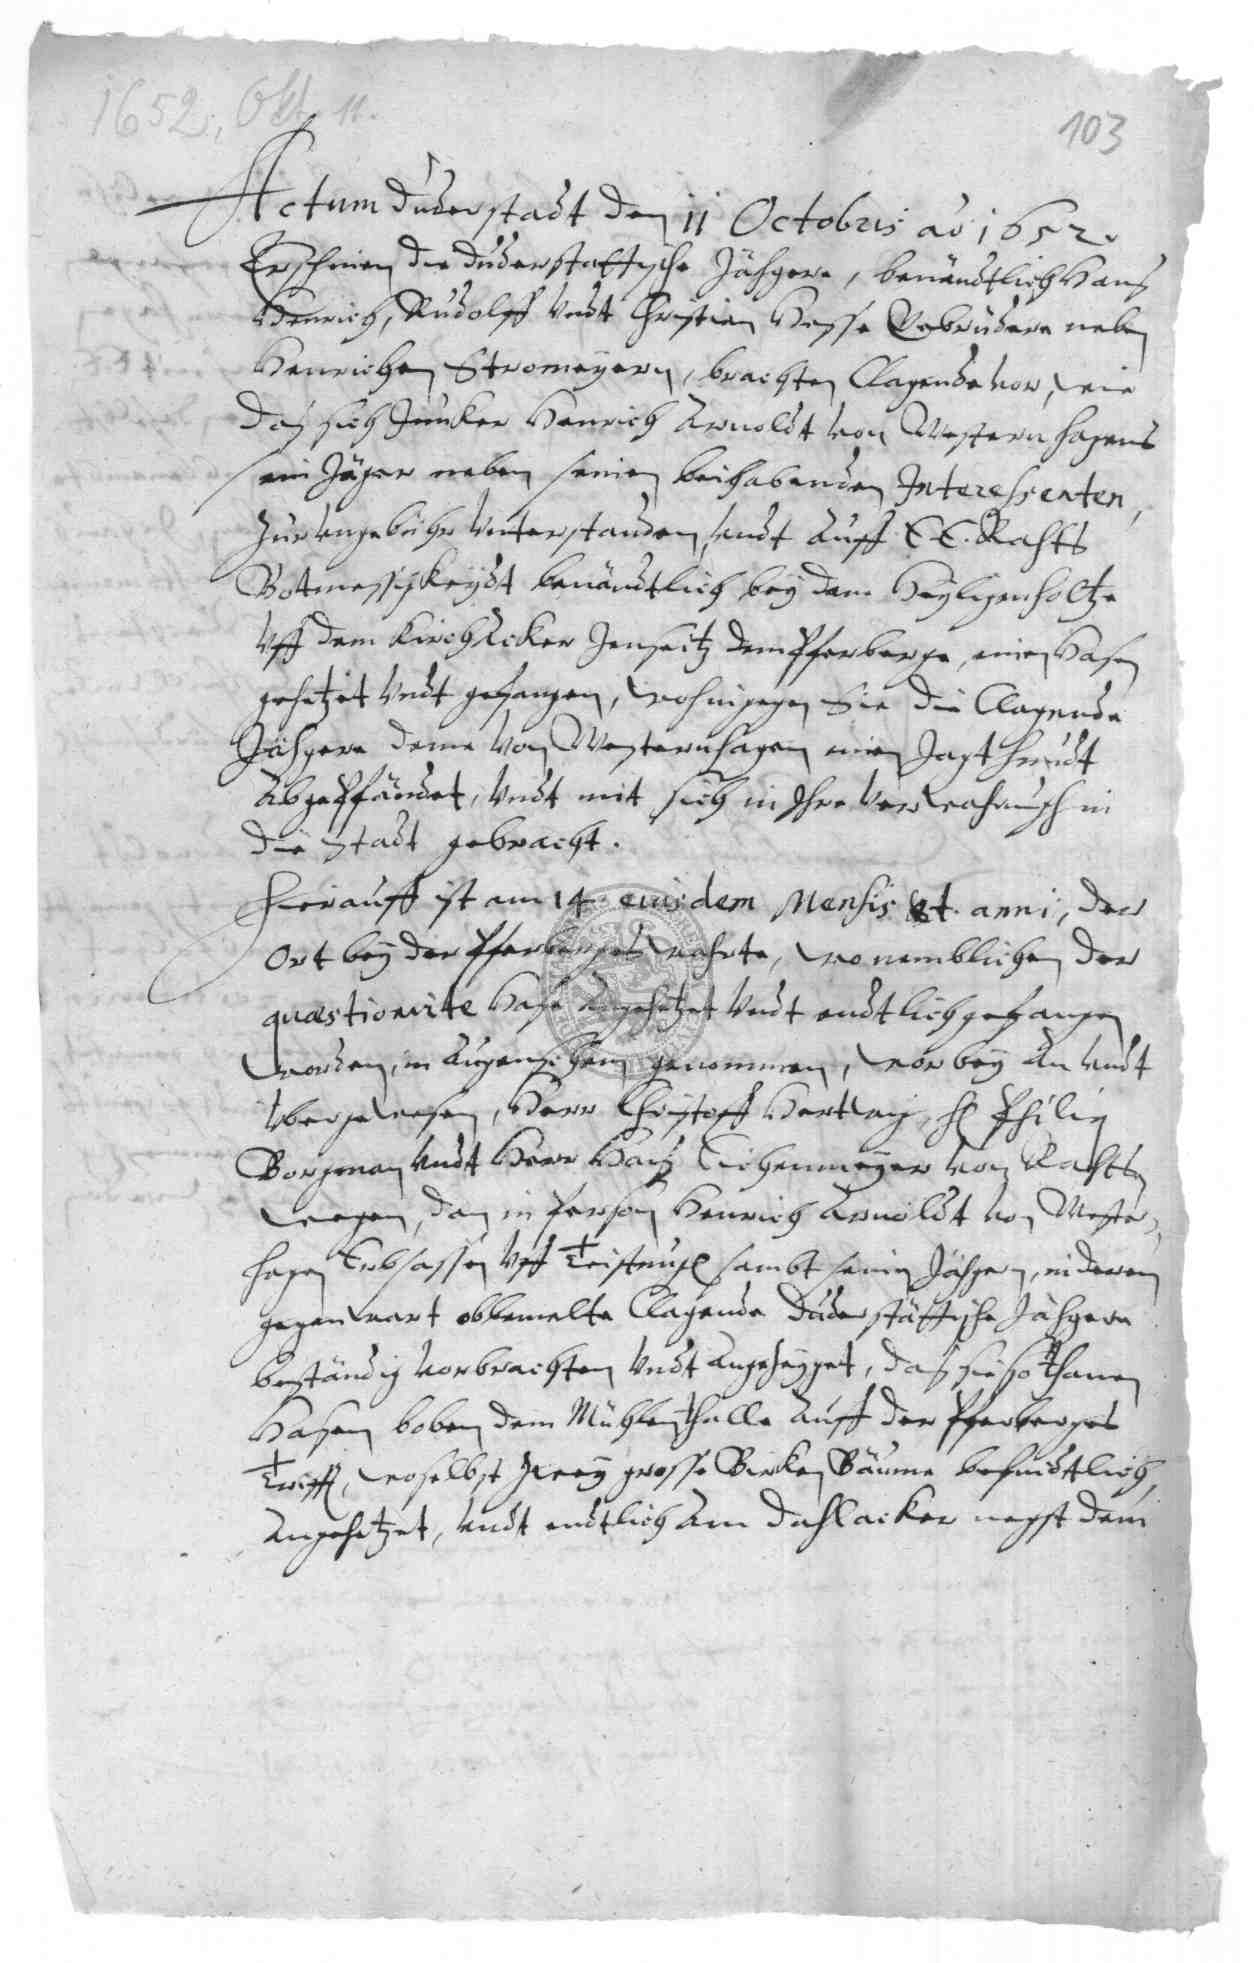 1652, Okt. 11.
103
Actum Duderstadt den 11 Octobris ao 1652.
Erschinen die Duderstattische Jähgere, benändtlich Hans
Henrich, Rudolff undt Christian Hesse Gebrüdere neben
Henrichen Stromeyern, brachten Clagende vor, wie
daß sich Juncker Henrich Arnoldt von Westernhagens
sein Jäger neben seinen beihabenden Interessenten,
Zur ungebühr unterstanden, undt auff E E. Rahts
Botmessigkeydt benändtlich bey dem Heyligenholtze
uff dem Kirch Acker Jenseitz dem Pferberge, einen Hasen
gehetzet undt gefangen, wohingegen Sie die Clagende
Jähgere deme von Westernhagen einen Jagthundt
abgepfändet, undt mit sich in Ihre verwahrung in
die Stadt gebracht.
Hierauff ist am 14 eiusdem Mensis et anni, der
Ort bey der Pferberges wahrte, wo nemblichen der
quæstionirte Hase angehetzet undt endtlich gefangen
worden, in augenschein genommen, worbey an undt
uber gewesen, Herr Christoff Hertwig, H Philip
Borgman undt Herr Hanß Eichenmeyer von Rahts
wegen, dan in Person Henrich Arnoldt von Western
hagen Erbsassen uff Teistung sambt seinen Jähgern, in deren
gegenwart obbemelte Clagende Duderstättische Jähgere
beständig vorbrachten undt angezeyget, daß sie sothanen
Hasen boben dem Mühlenthalle auff der Pferberges
Trifft, woselbst zwey grosse Bircken Bäume befindtlich,
angehetzet, undt endtlich am Dahlacker negst dem